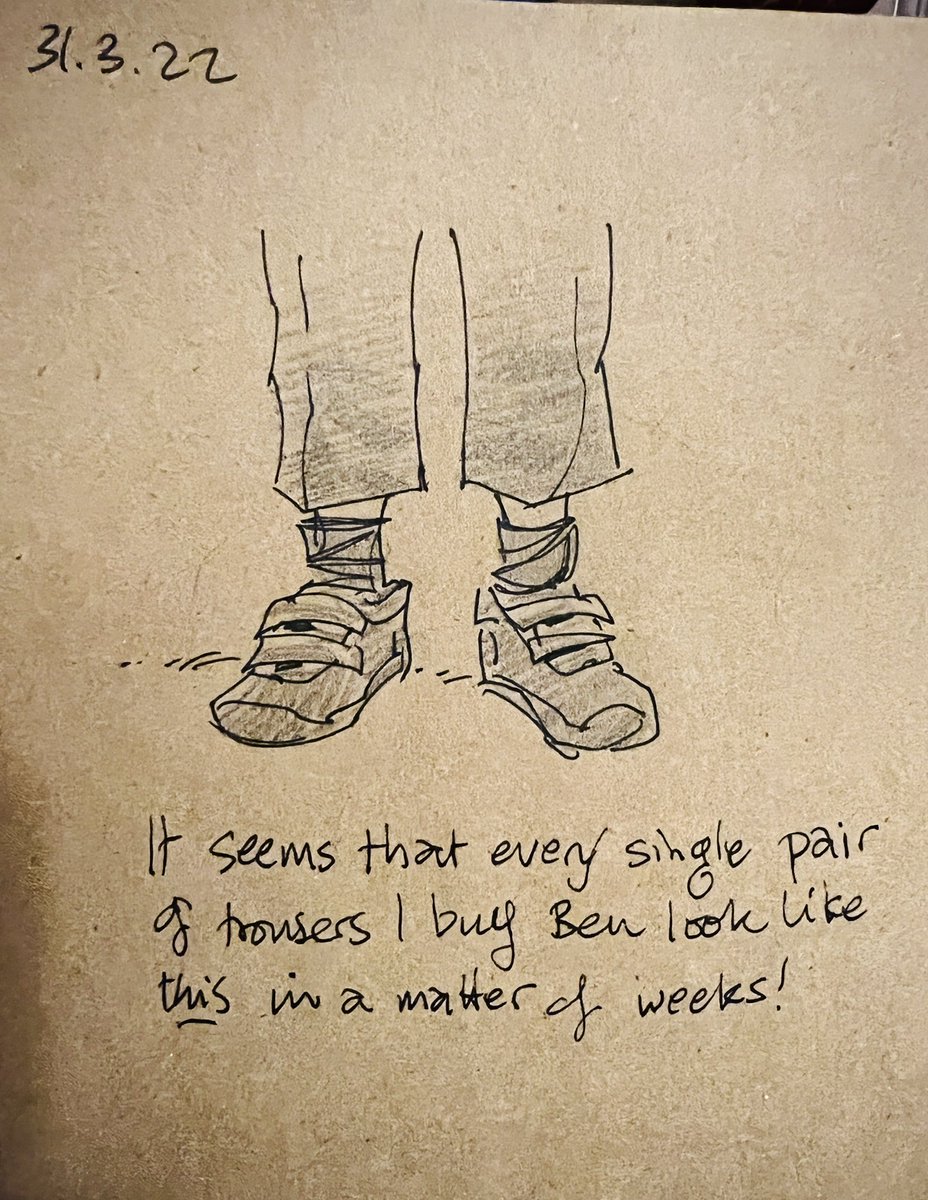 31.3.22
It seems that every single pair
of trousers I buy Ben look like
this in a matter of weeks!